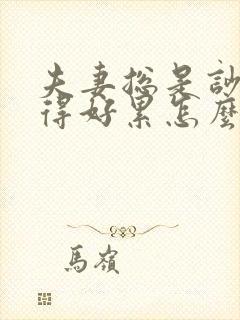 夫妻總是訬
得好累怎麼
馬嶺